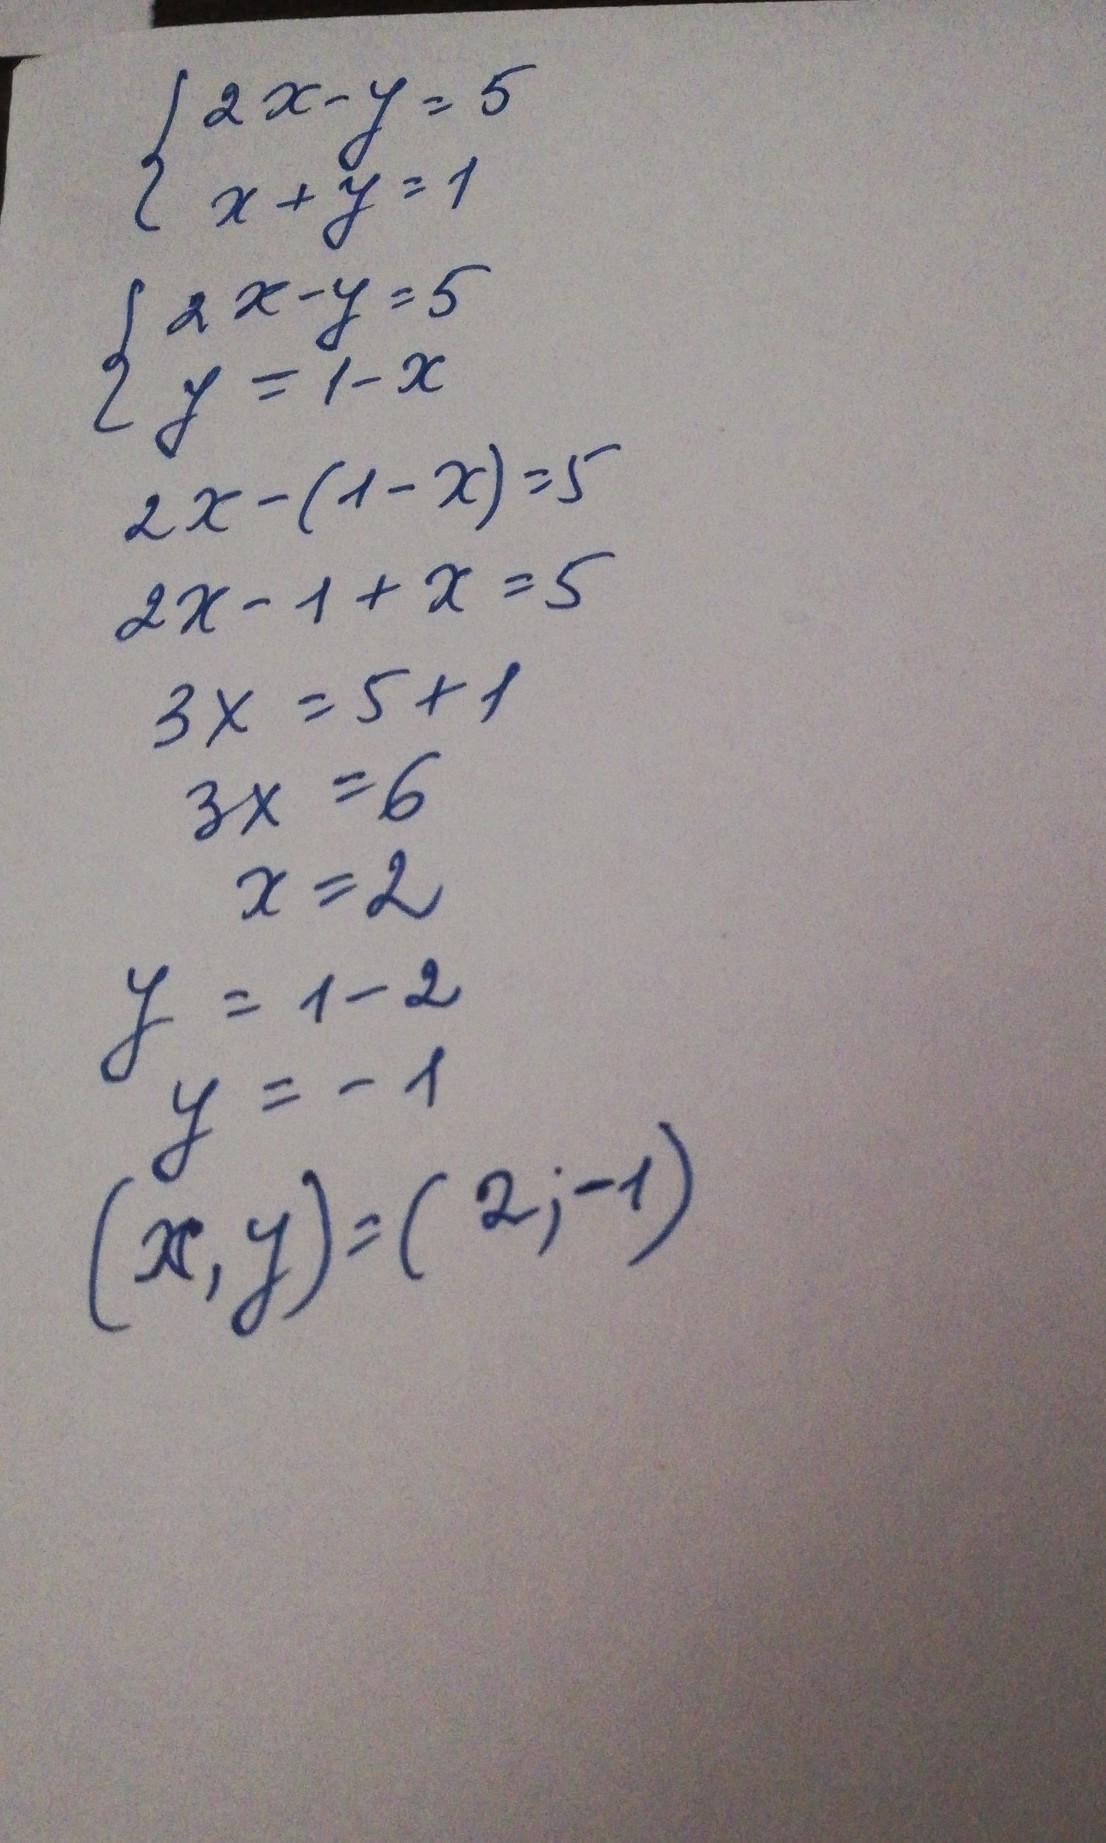 { 2x-y=5
x+y=1
{ 2x-y=5
y=1-x
2x-(1-x)=5
2x-1+x=5
3x=5+1
3x=6
x=2
y=1-2
y=-1
(x,y)=(2;-1)